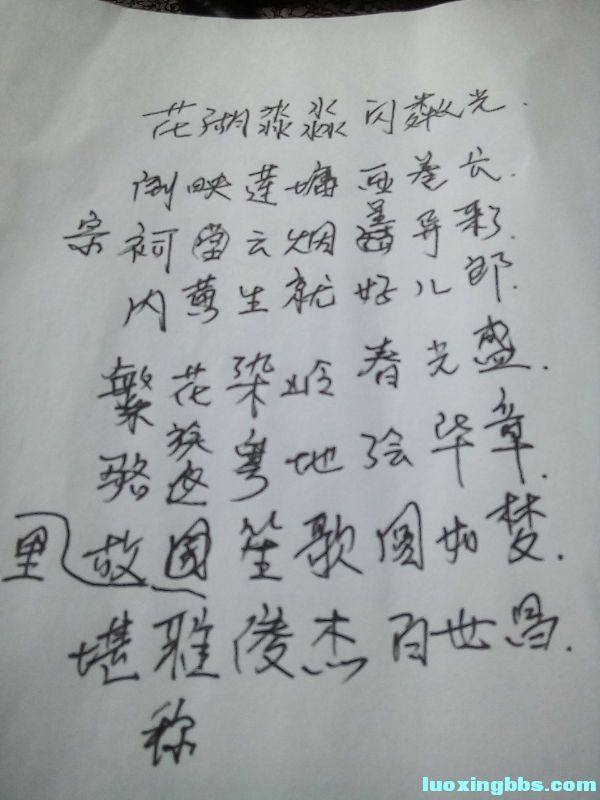 花湖淼淼闪粼光.
倒映莲塘画卷长.
宗祠堂云烟焕异彩.
内黄生就好儿郎.
繁花染岭春光盛.
骆族返粤地绘华章.
里故国笙歌圆如梦.
堪雅俊杰百世昌.
称
luoxingbbs.com